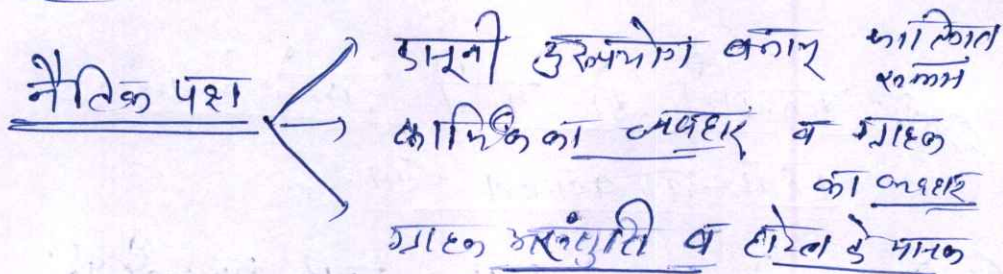 नैतिक पक्ष
कानूनी दुरुपयोग बनाम व्यक्तिगत
कार्मिक का व्यवहार व ग्राहक
का व्यवहार
ग्राहक असंतुष्टि व होटल के मानक